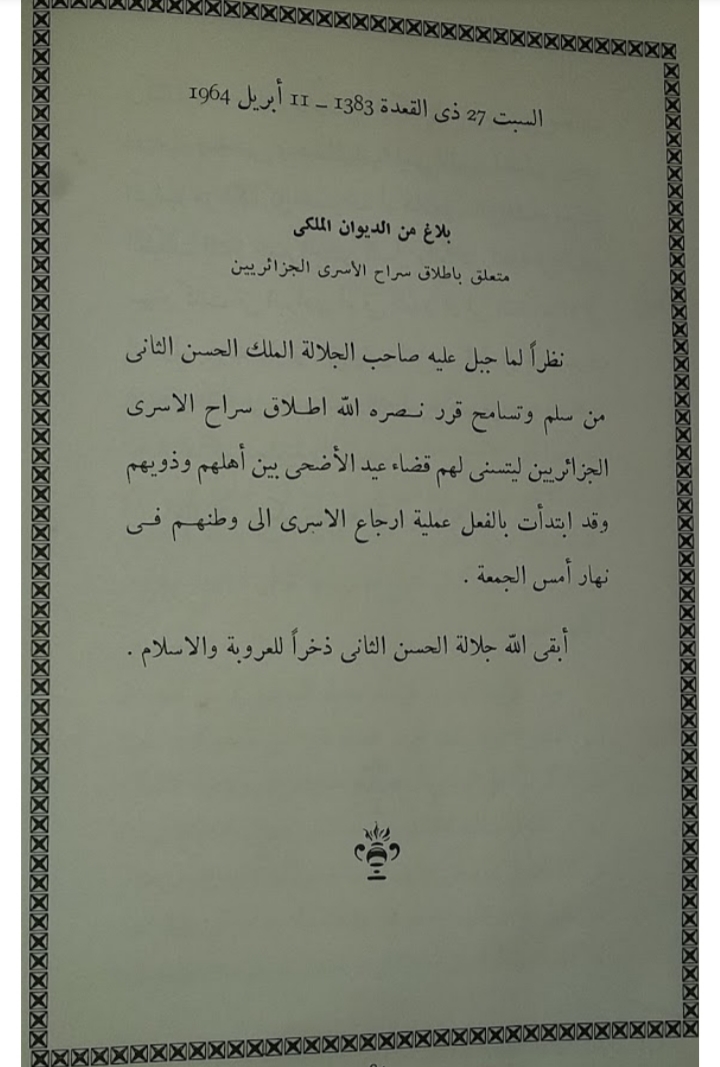 السبت 27 ذى القعدة 1383 – 11 أبريل 1964
بلاغ من الديوان الملكى
متعلق باطلاق سراح الأسرى الجزائريين
نظراً لما جبل عليه صاحب الجلالة الملك الحسن الثانى
من سلم وتسامح قرر نصره الله اطلاق سراح الاسرى
الجزائريين ليتسنى لهم قضاء عيد الأضحى بين أهلهم وذويهم
وقد ابتدأت بالفعل عملية ارجاع الاسرى الى وطنهم فى
نهار أمس الجمعة .
أبقى الله جلالة الحسن الثانى ذخراً للعروبة والاسلام .